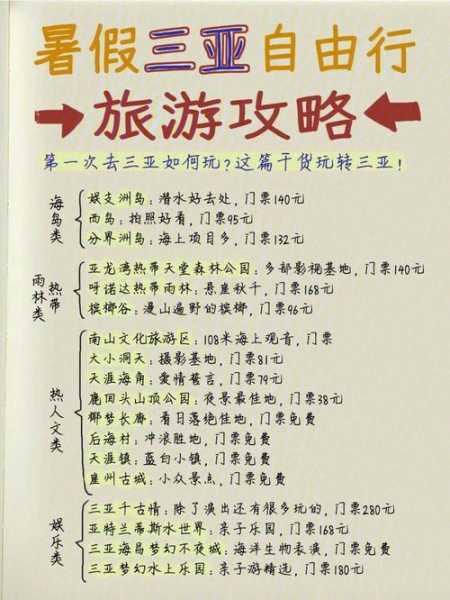 暑假三亚自由行
旅游攻略
第一次去三亚如何玩?这篇干货玩转三亚!
海岛类
娱支洲岛:潜水好去处,门票140元
西岛:拍照好看,门票95元
分界洲岛:海上项目多,门票132元
热带雨林类
亚龙湾热带天堂森林公园:多部影视基地,门票140元
呀诺达热带雨林:悬崖秋千,门票168元
槟榔谷:漫山遍野的槟榔,门票96元
热人文类
南山文化旅游区:108米海上观音,门票
大小洞天:摄影基地,门票81元
天涯海角:爱情誓言,门票79元
鹿回头山顶公园:夜景最佳地,门票38元
椰梦长廊:看日落绝佳地,门票免费
后海村:冲浪胜地,门票免费
天涯镇:蓝白小镇,门票免费
崖州古城:小众景点,门票免费
娱乐类
三亚千古情:除了演出还有很多玩的,门票280元
亚特兰蒂斯水世界:亲子乐园,门票168元
三亚海昌梦幻不夜城:海洋生物表演,门票免费
三亚梦幻水上乐园:亲子游精选,门票180元